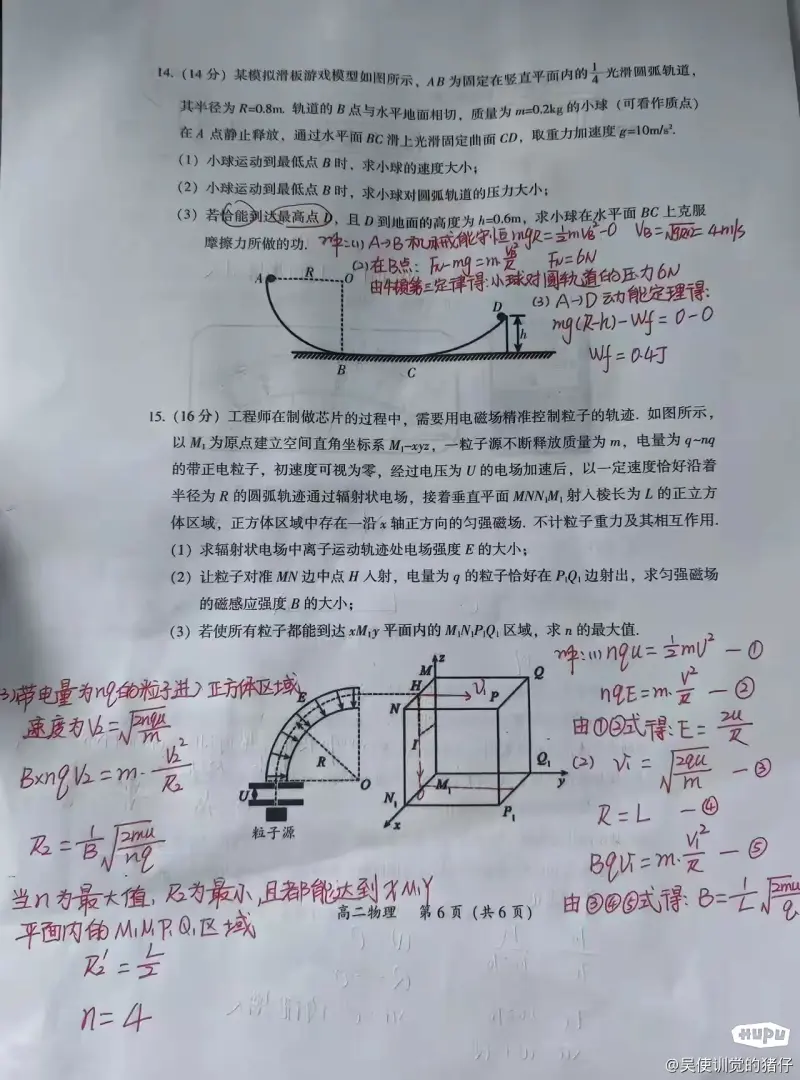 14.（14 分）某模拟滑板游戏模型如图所示，AB 为固定在竖直平面内的 1/4 光滑圆弧轨道，
其半径为 R=0.8m. 轨道的 B 点与水平地面相切，质量为 m=0.2kg 的小球（可看作质点）
在 A 点静止释放，通过水平面 BC 滑上光滑固定曲面 CD，取重力加速度 g=10m/s².
（1）小球运动到最低点 B 时，求小球的速度大小；
（2）小球运动到最低点 B 时，求小球对圆弧轨道的压力大小；
（3）若恰能到达最高点 D，且 D 到地面的高度为 h=0.6m，求小球在水平面 BC 上克服
摩擦力所做的功.
解:(1) A→B 机械能守恒 mgR=½mVB²-0 VB=√2gR=4m/s
(2)在B点: FN-mg=m·VB²/R FN=6N
由牛顿第三定律得:小球对圆轨道的压力6N
(3) A→D 动能定理得:
mg(R-h)-Wf=0-0
Wf=0.4J
A R O
D
h
B C
15.（16 分）工程师在制做芯片的过程中，需要用电磁场精准控制粒子的轨迹. 如图所示，
以 M₁ 为原点建立空间直角坐标系 M₁-xyz，一粒子源不断释放质量为 m，电量为 q~nq
的带正电粒子，初速度可视为零，经过电压为 U 的电场加速后，以一定速度恰好沿着
半径为 R 的圆弧轨迹通过辐射状电场，接着垂直平面 MNN₁M₁ 射入棱长为 L 的正立方
体区域，正方体区域中存在一沿 x 轴正方向的匀强磁场. 不计粒子重力及其相互作用.
（1）求辐射状电场中离子运动轨迹处电场强度 E 的大小；
（2）让粒子对准 MN 边中点 H 入射，电量为 q 的粒子恰好在 P₁Q₁ 边射出，求匀强磁场
的磁感应强度 B 的大小；
（3）若使所有粒子都能到达 xM₁y 平面内的 M₁N₁P₁Q₁ 区域，求 n 的最大值.
解:(1) nqu=½mV² —①
nqE=m·V²/R —②
由①②式得:E=2u/R
(2) V₁=√(2qu/m) —③
R=L —④
BqV₁=m·V₁²/R —⑤
由③④⑤式得: B=1/L√(2mu/q)
E
R
O
U
粒子源
z
M
H
V₁
Q
N
P
I
M₁
Q₁
y
N₁
P₁
x
3)带电量为nq的粒子进入正方体区域
速度为V₂=√(2nqu/m)
B×nqV₂=m·V₂²/R₂
R₂=1/B√(2mu/nq)
当n为最大值，R₂为最小,且都能达到XM₁Y
平面内的M₁N₁P₁Q₁区域
R₂'=L/2
n=4
高二物理 第 6 页（共 6 页）
HUPU
@吴使训觉的猪仔